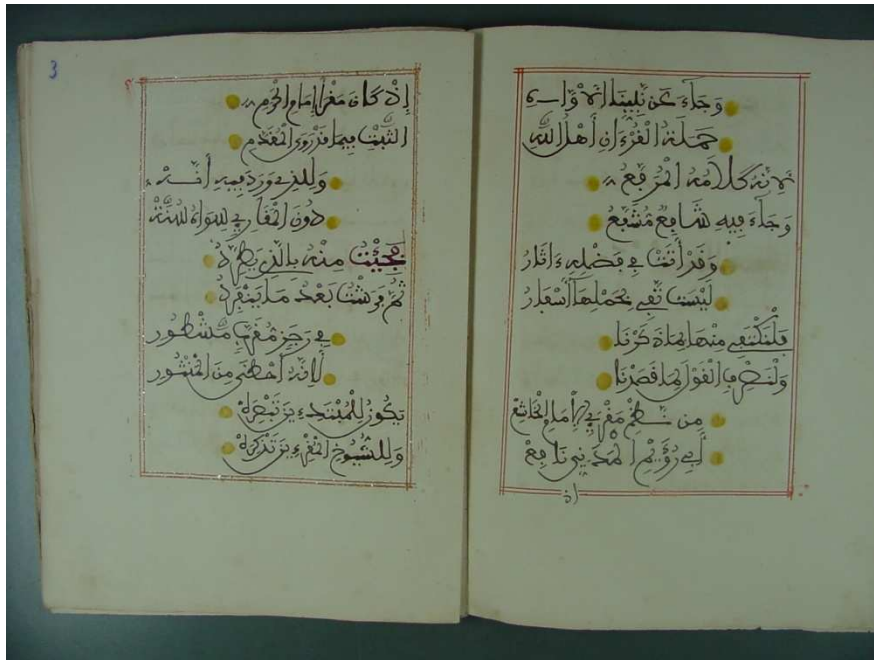 وَجَاءَ عَن نَبِيِّنَا الْأَوَّاهِ
حَمَلَةُ الْقُرْءَانِ أَهْلُ اللَّهِ
لِأَنَّهُ كَلَامُهُ الْمُرَفَّعُ
وَجَاءَ فِيهِ شَافِعٌ مُشَفَّعُ
وَقَدْ أَتَتْ فِي فَضْلِهِ ءَاثَارُ
لَيْسَتْ تَفِي بِحَمْلِهَا أَسْفَارُ
فَلْنَكْتَفِي مِنْهَا بِمَا ذَكَرْنَا
وَلْنَصْرِفِ الْقَوْلَ لِمَا قَصَدْنَا
مِن نَظْمِ مَقْرَإِ الْإِمَامِ الْخَاشِعْ
أَبِي رُوَيْمٍ الْمَدَنِيِّ نَافِعْ
إذ
3
إِذْ كَانَ مَقْرَأُ إِمَامِ الْحَرَمِ
الثَّبْتُ فِيمَا قَدْ رَوَى الْمُقَدَّمِ
وَلِلَّذِي وَرَدَ فِيهِ أَنَّهُ
دُونَ الْمَقَارِي سِوَاهُ سُنَّهْ
فَجِئْتُ مِنْهُ بِالَّذِي يَطَّرِدُ
ثُمَّ فَرَشْتُ بَعْدُ مَا يَنْفَرِدُ
فِي رَجَزٍ مُقَرَّبٍ مَشْطُورِ
لِأَنَّهُ أَحْظَى مِنَ الْمَنْثُورِ
يَكُونُ لِلْمُبْتَدِءِينَ تَبْصِرَهْ
وَلِلشُّيُوخِ الْمُقْرِءِينَ تَذْكِرَهْ